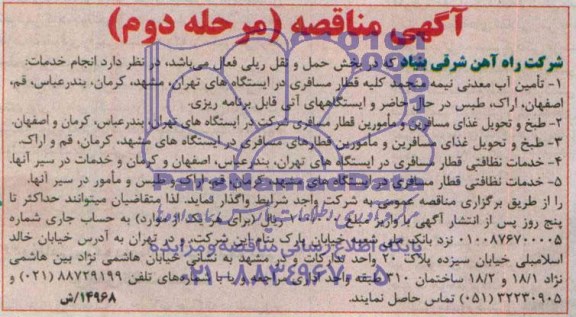 آگهی مناقصه (مرحله دوم)
شرکت راه آهن شرقی بنیاد که در بخش حمل و نقل ریلی فعال می‌باشد، در نظر دارد انجام خدمات:
۱- تأمین آب معدنی نیمه منجمد کلیه قطار مسافری در ایستگاه های تهران، مشهد، کرمان، بندرعباس، قم،
اصفهان، اراک، طبس در حال حاضر و ایستگاههای آتی قابل برنامه ریزی.
۲- طبخ و تحویل غذای مسافرین و مأمورین قطار مسافری شرکت در ایستگاه های تهران، بندرعباس، کرمان و اصفهان.
۳- طبخ و تحویل غذای مسافرین و مأمورین قطارهای مسافری در ایستگاه های مشهد، کرمان، قم و اراک.
۴- خدمات نظافتی قطار مسافری در ایستگاه های تهران، بندرعباس، اصفهان و کرمان و خدمات در سیر آنها.
۵- خدمات نظافتی قطار مسافری در ایستگاه های مشهد، کرمان، قم، اراک، طبس و مأمور در سیر آنها.
را از طریق برگزاری مناقصه عمومی به شرکت واجد شرایط واگذار نماید. لذا متقاضیان میتوانند حداکثر تا
پنج روز پس از انتشار آگهی با واریز مبلغ ریال (برای هر یک از موارد) به حساب جاری شماره
۰۱۰۰۸۷۶۷۰۰۰۰۵ نزد بانک ملی شعبه خیابان پارک بنام شرکت و در تهران به آدرس خیابان خالد
اسلامبلی خیابان سیزده پلاک ۲۰ واحد تدارکات و در مشهد به نشانی خیابان هاشمی نژاد بین هاشمی
نژاد ۱۸/۱ و ۱۸/۲ ساختمان ۳۱۰ طبقه واحد اداری مراجعه و یا با شماره‌های تلفن ۸۸۷۲۹۱۹۹ (۰۲۱) و
۳۲۲۳۰۹۰۵ (۰۵۱) تماس حاصل نمایند.
۱۴۹۶۸/ش
ParsNamadData
پایگاه اطلاع رسانی مناقصه و مزایده
۰۲۱-۸۸۳۴۹۶۷۰-۵